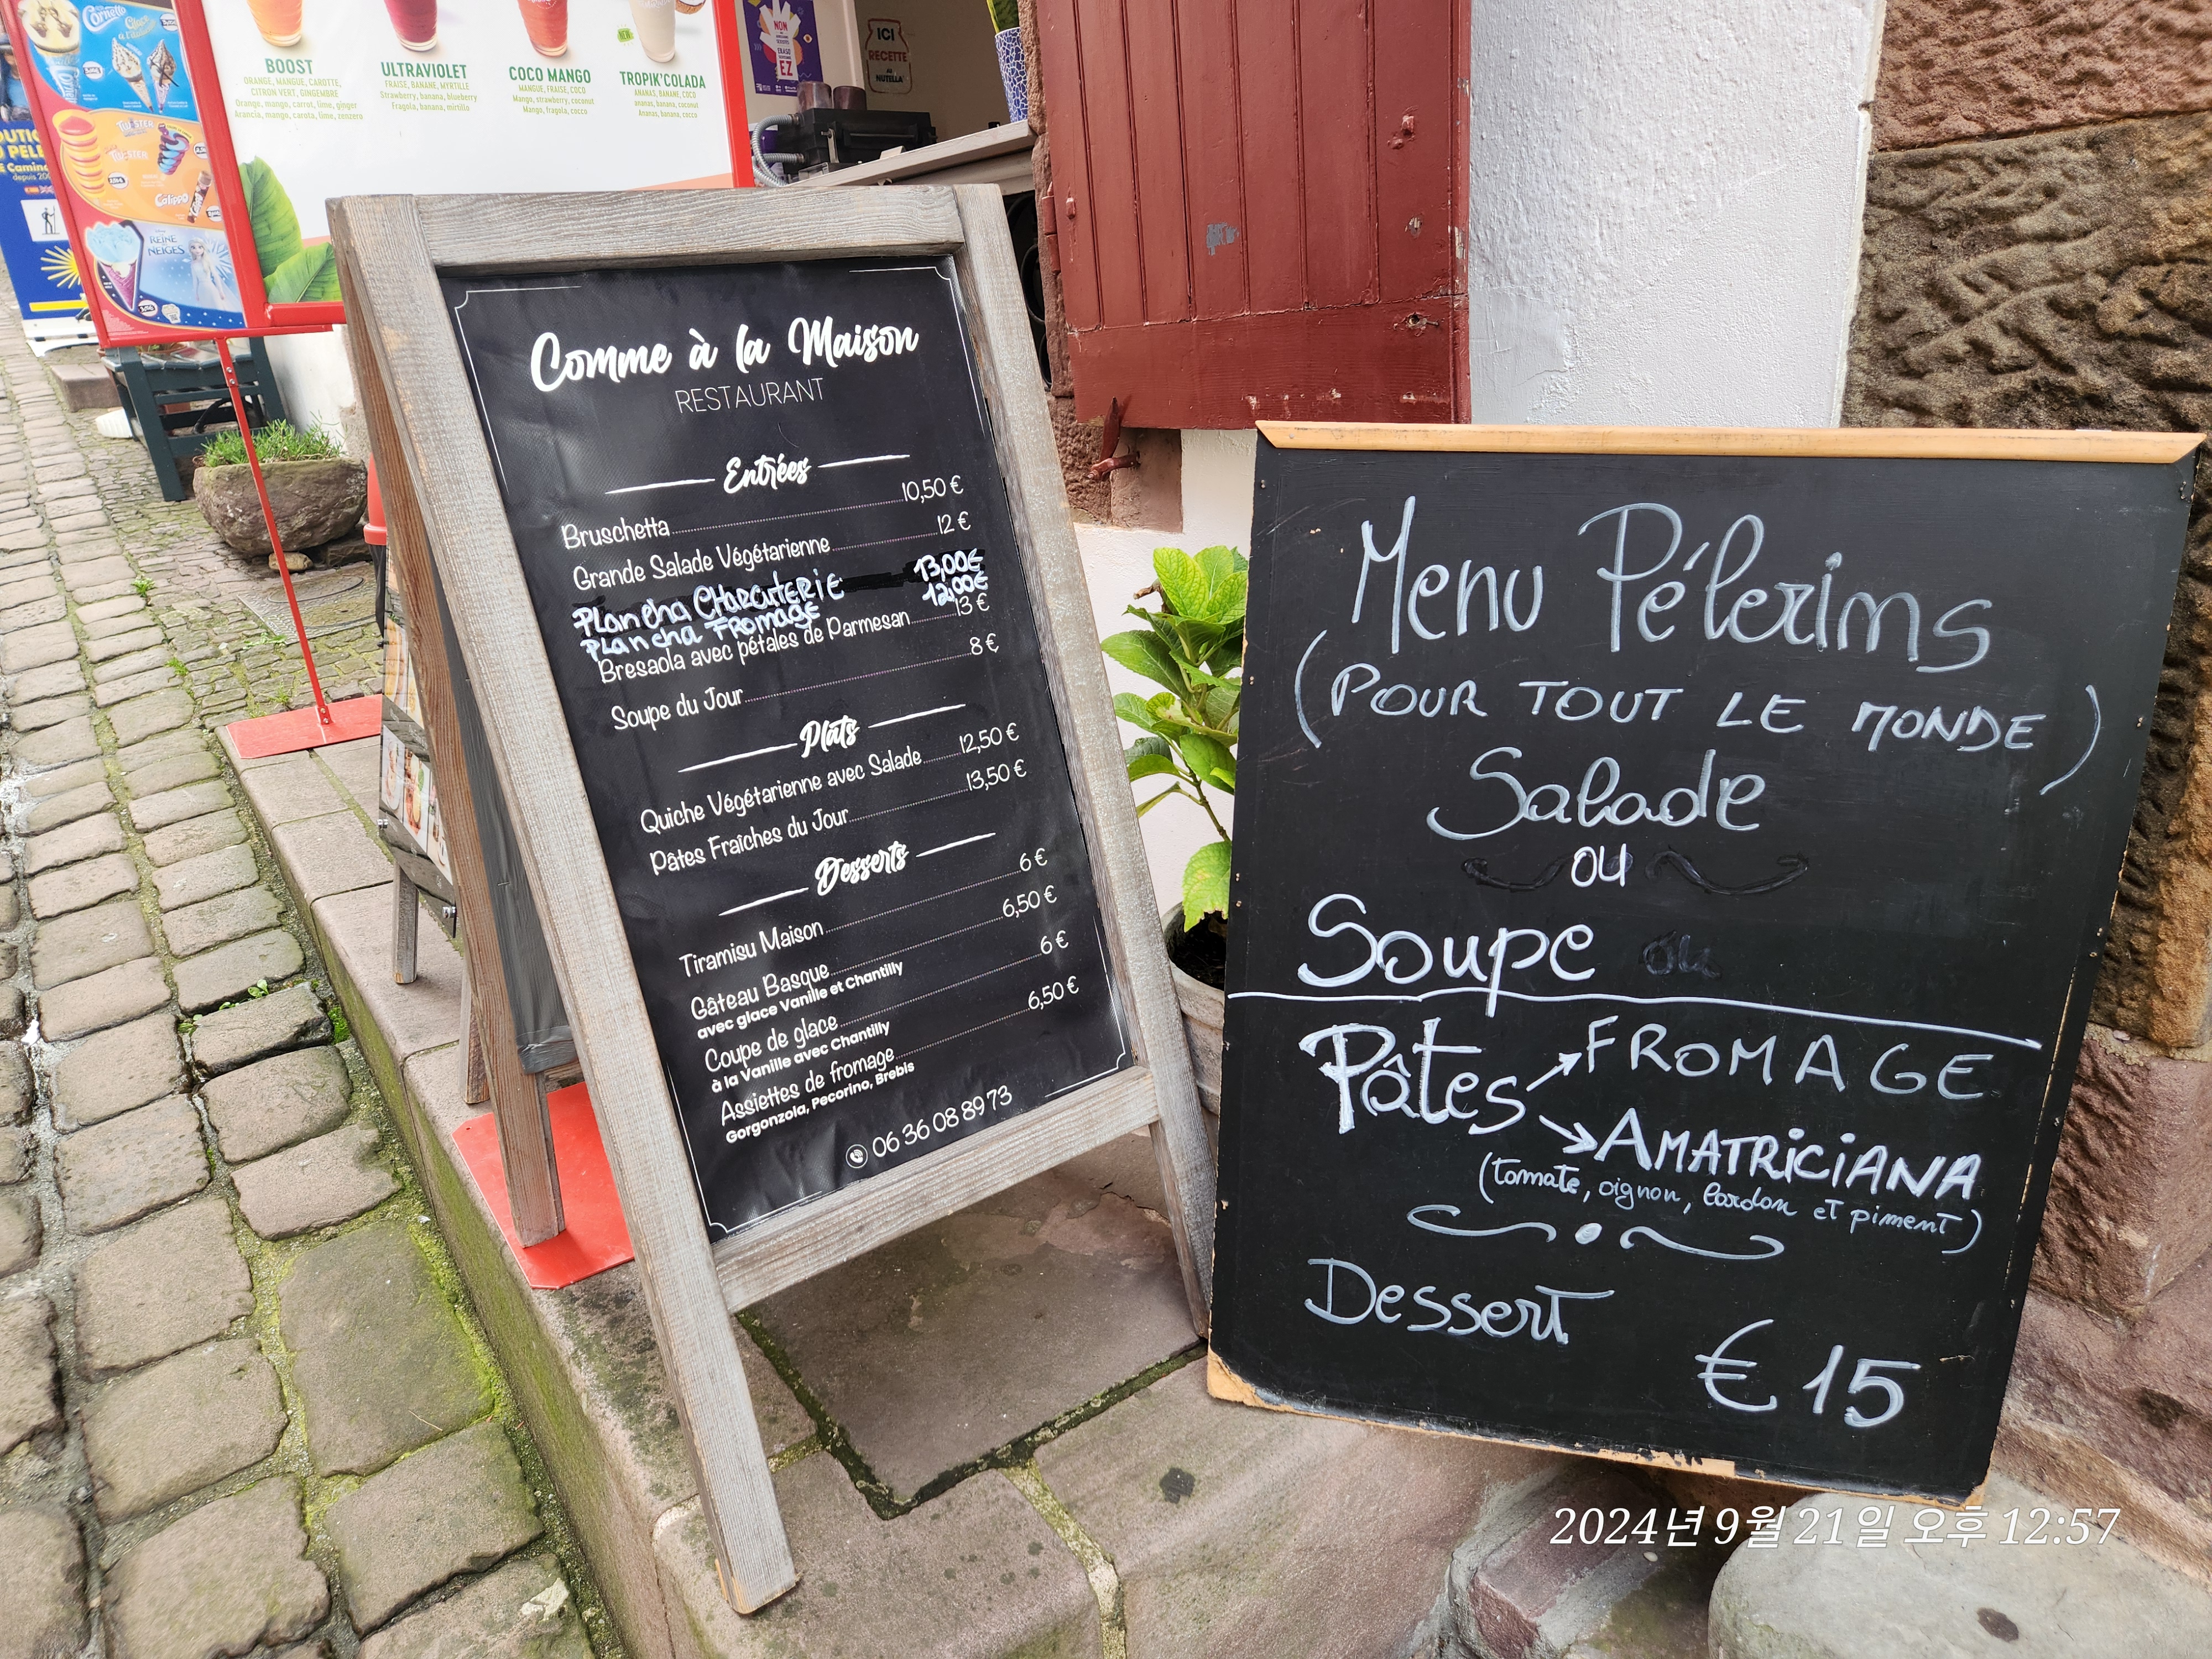 Cornetto
BOOST
ORANGE, MANGUE, CAROTTE,
CITRON VERT, GINGEMBRE
Orange, mango, carrot, lime, ginger
Arancia, mango, carota, lime, zenzero
ULTRAVIOLET
FRAISE, BANANE, MYRTILLE
Strawberry, banana, blueberry
Fragola, banana, mirtillo
COCO MANGO
MANGUE, FRAISE, COCO
Mango, strawberry, coconut
Mango, fragola, cocco
TROPIK'COLADA
ANANAS, BANANE, COCO
ananas, banana, coconut
Ananas, banana, cocco
NON
EZ
ICI
RECETTE
NUTELLA
TWISTER
Calippo
REINE
NEIGES
depuis
Comme à la Maison
RESTAURANT
Entrées
Bruschetta 10,50 €
Grande Salade Végétarienne 12 €
PLanCha CHARCUTERIE 13,00€
PLancha FROMAGE 12,00€
Bresaola avec pétales de Parmesan 13 €
Soupe du Jour 8 €
Plats
Quiche Végétarienne avec Salade 12,50 €
Pâtes Fraîches du Jour 13,50 €
Desserts
Tiramisu Maison 6 €
Gâteau Basque 6,50 €
avec glace Vanille et Chantilly
Coupe de glace 6 €
à la Vanille avec Chantilly
Assiettes de fromage 6,50 €
Gorgonzola, Pecorino, Brebis
06 36 08 89 73
Menu Pélerims
(POUR TOUT LE MONDE)
Salade
ou
Soupe ou
Pâtes → FROMAGE
→ AMATRICIANA
(tomate, oignon, lardon et piment)
Dessert
€ 15
2024년 9월 21일 오후 12:57